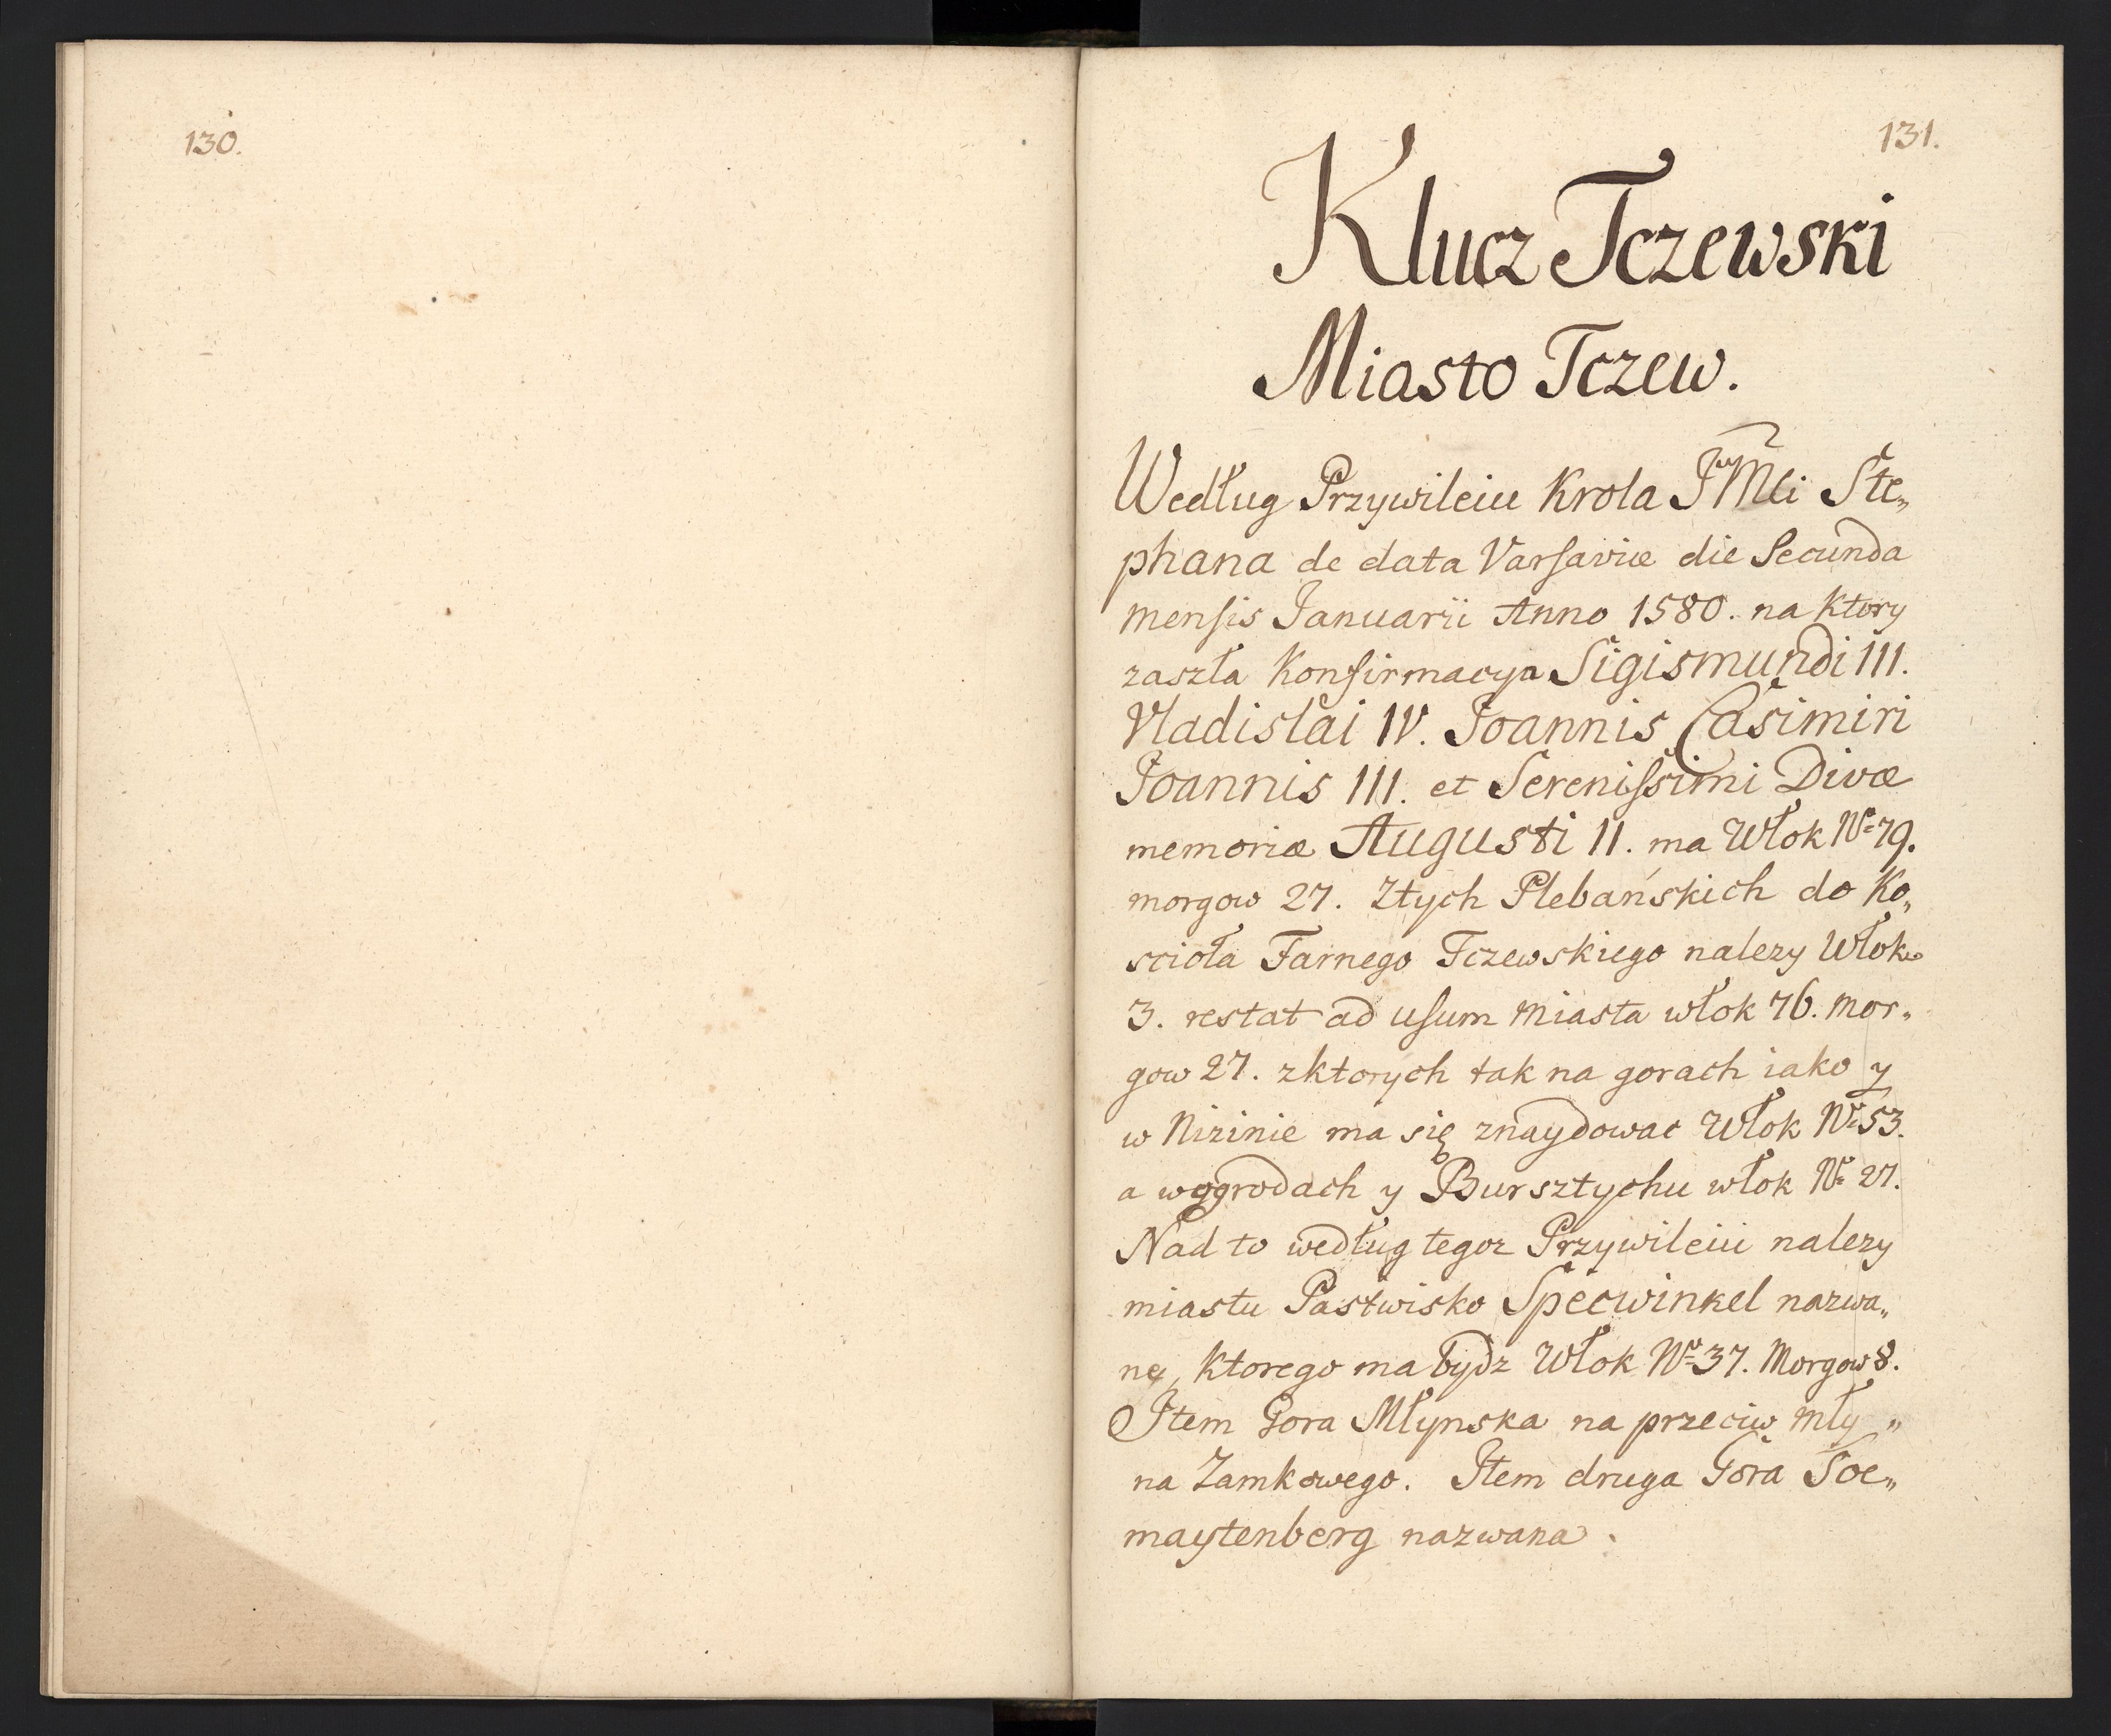 130.
131.
Klucz Tczewski
Miasto Tczew.
Według Przywileiu Krola JMci Ste„
phana de data Varsaviæ die Secunda
mensis Januarii Anno 1580. na Ktory
zaszła Konfirmacya Sigismundi III.
Vladislai IV. Joannis Casimiri
Joannis III. et Serenissimi Divæ
memoriæ Augusti II. ma Włok Nº 79.
morgow 27. Ztych Plebańskich do Ko„
scioła Farnego Tczewskiego nalezy Włok
3. restat ad usum Miasta włok 76. mor„
gow 27. zktorych tak na gorach iako y
w Nizinie ma się znaydowac Włok Nº 53.
a wogrodach y Bursztychu włok Nº 27.
Nad to według tegoz Przywileiu nalezy
miastu Pastwisko Specwinkel nazwa„
ne, Ktorego ma bydz Włok Nº 37. Morgow 8.
Item Gora Młynska na przeciw mły„
na Zamkowego. Item druga Gora Soe„
maytenberg nazwana.